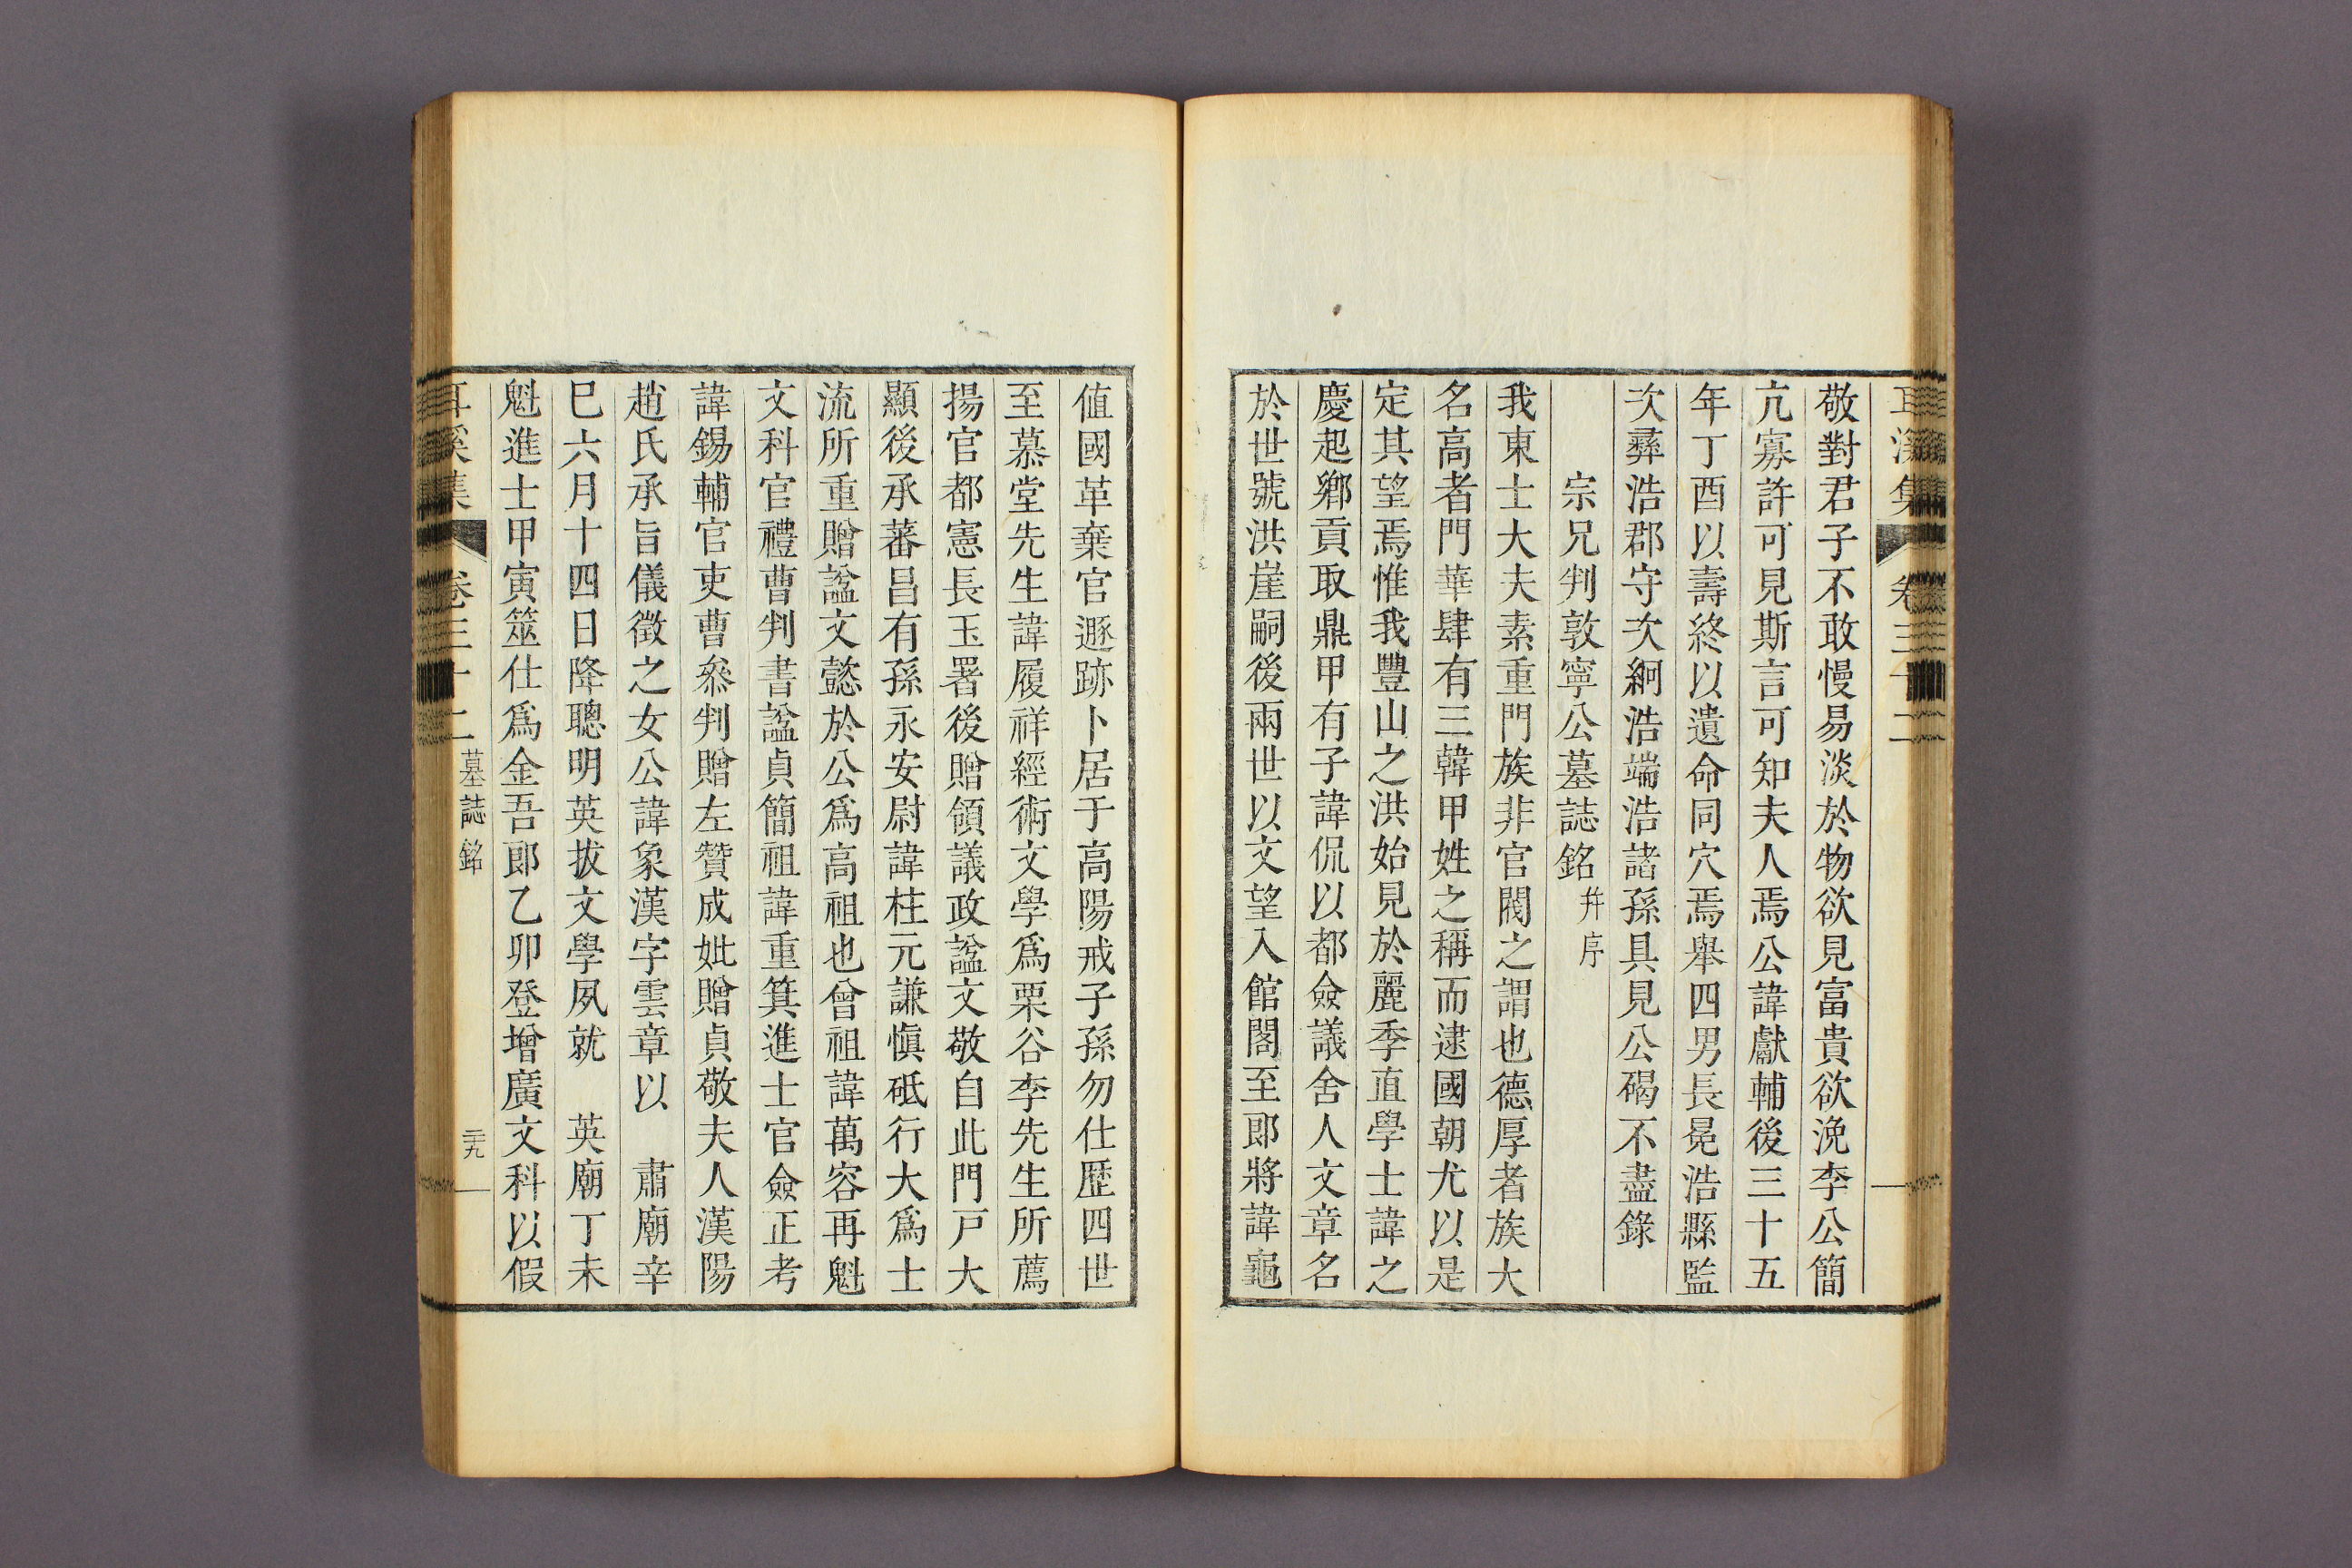 耳溪集 卷三十二
敬對君子不敢慢易淡於物欲見富貴欲浼李公簡
亢寡許可見斯言可知夫人焉公諱獻輔後三十五
年丁酉以壽終以遺命同穴焉舉四男長晃浩縣監
次彝浩郡守次絅浩端浩諸孫具見公碣不盡錄
宗兄判敦寧公墓誌銘幷序
我東士大夫素重門族非官閥之謂也德厚者族大
名高者門華肆有三韓甲姓之稱而逮國朝尤以是
定其望焉惟我豐山之洪始見於麗季直學士諱之
慶起鄕貢取鼎甲有子諱侃以都僉議舍人文章名
於世號洪崖嗣後兩世以文望入館閣至郎將諱龜
値國革棄官遯跡卜居于高陽戒子孫勿仕歷四世
至慕堂先生諱履祥經術文學爲栗谷李先生所薦
揚官都憲長玉署後贈領議政諡文敬自此門戶大
顯後承蕃昌有孫永安尉諱柱元謙愼砥行大爲士
流所重贈諡文懿於公爲高祖也曾祖諱萬容再魁
文科官禮曹判書諡貞簡祖諱重箕進士官僉正考
諱錫輔官吏曹叅判贈左贊成妣贈貞敬夫人漢陽
趙氏承旨儀徵之女公諱象漢字雲章以 肅廟辛
巳六月十四日降聰明英拔文學夙就 英廟丁未
魁進士甲寅筮仕爲金吾郎乙卯登增廣文科以假
耳溪集 卷三十二 墓誌銘 二十九